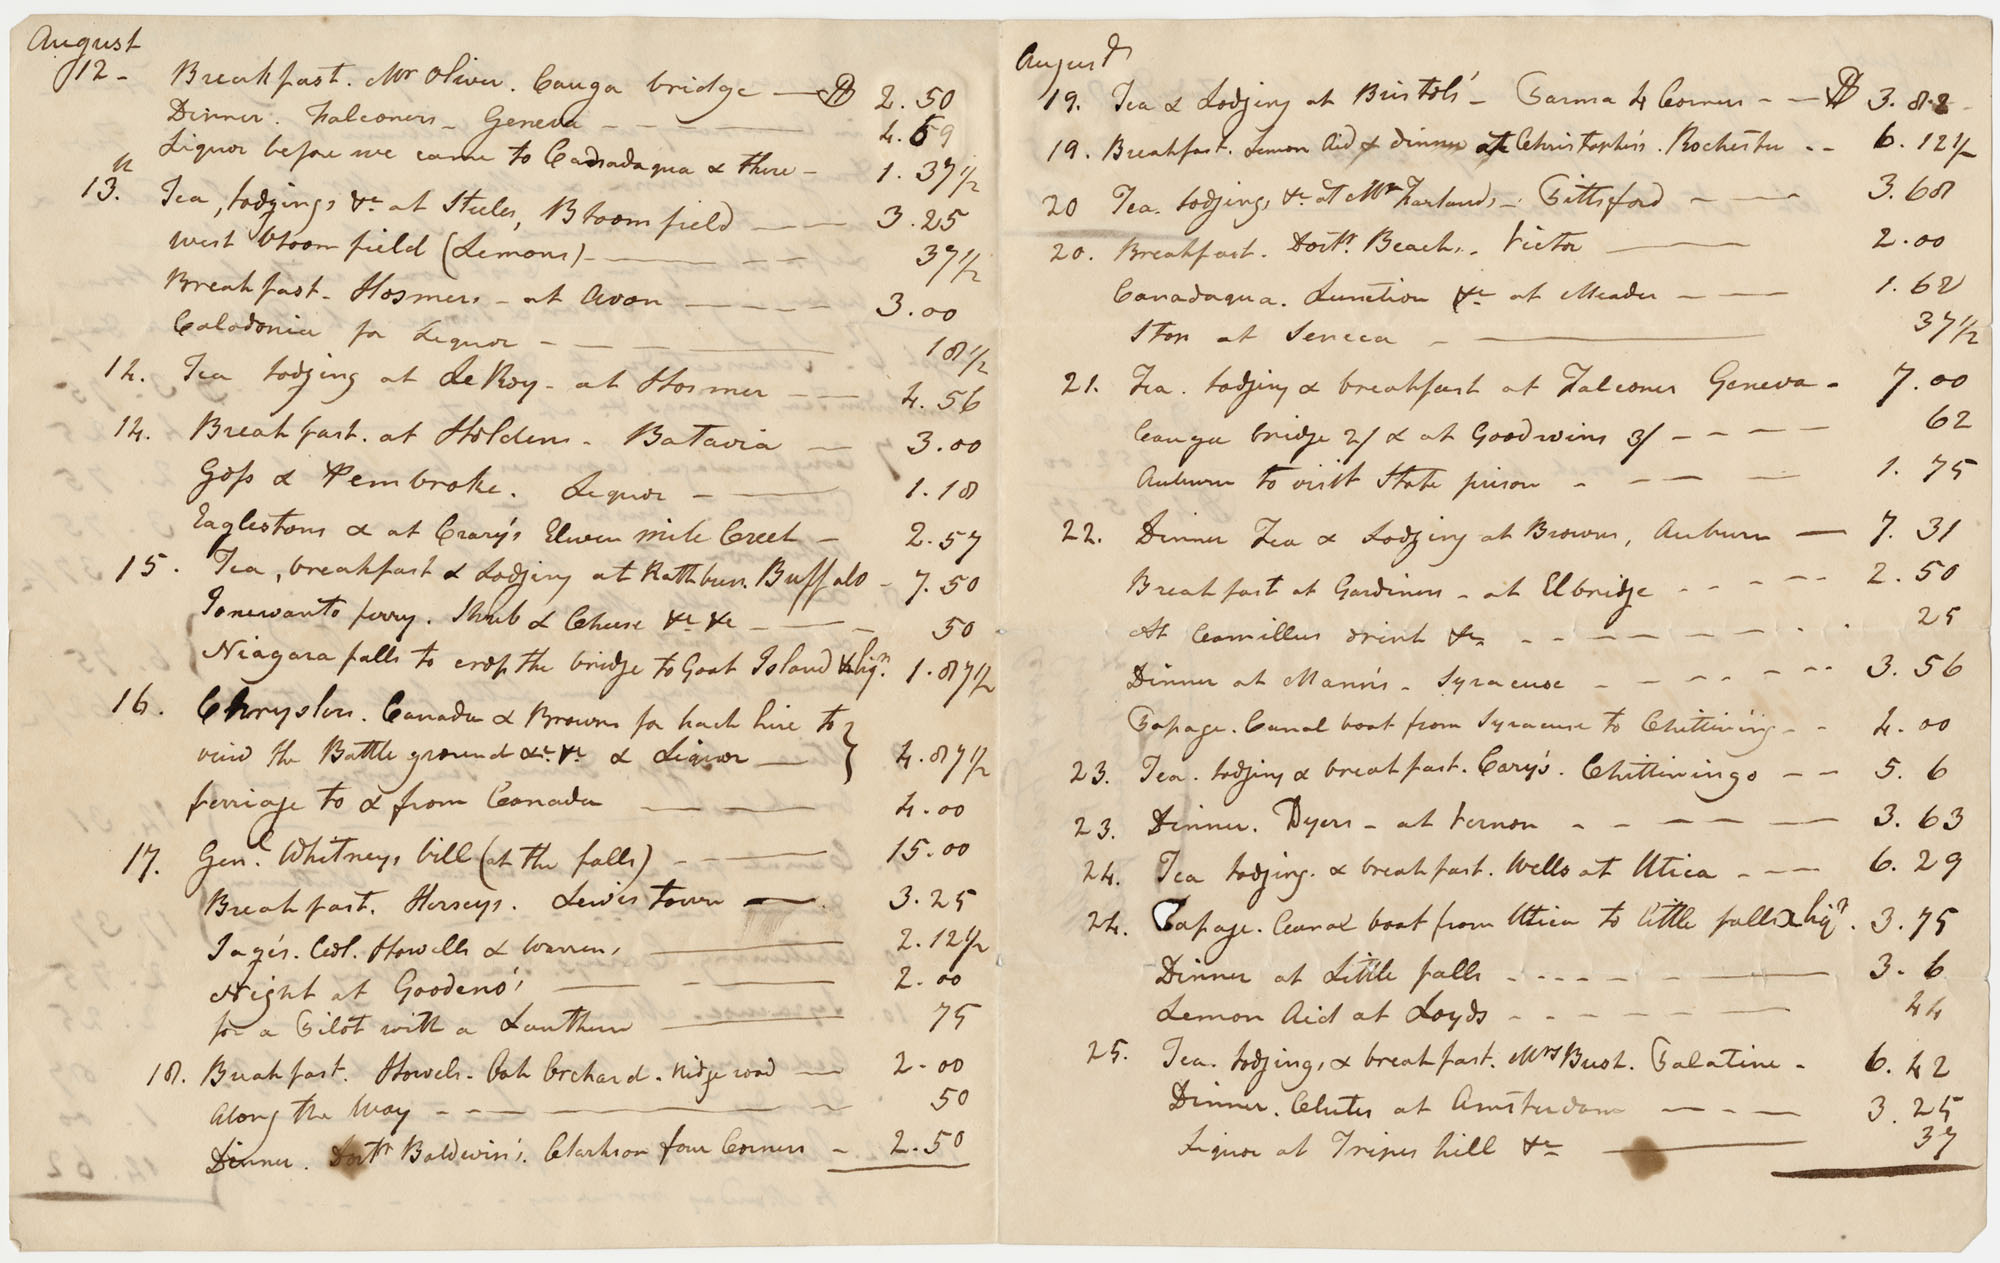 August
12 - Breakfast. Mr Oliver. Cauga bridge — $ 2.50
Dinner. Falconers - Geneva - - - — 4.59
Liquor before we came to Canadaqua & there - 1.37 1/2
13. Tea, lodgings &c at Steeles, Bloomfield — — 3.25
West bloomfield (Lemons) - — - - 37 1/2
Breakfast - Hosmers - at Avon - - - - 3.00
Caladonia for Liquor - - — — 18 1/2
14. Tea lodging at LeRoy - at Hosmer - - — 4.56
14. Breakfast. at Holdens - Batavia — 3.00
Goss & Pembroke. Liquor - — 1.18
Eaglestons & at Crary's Eleven mile Creek - 2.57
15. Tea, breakfast & Lodging at Rathbun. Buffalo - 7.50
Tonewanto ferry. Shrub & Cheese &c &c — - — 50
Niagara falls to cross the bridge to Goat Island & liqr. 1.87 1/2
16. Chryslers. Canada & Browns for hack hire to }
view the Battle ground &c. &c & Liquor — } 4.87 1/2
ferriage to & from Canada — — — 4.00
17. Genl. Whitneys bill (at the falls) - — — 15.00
Breakfast. Herseys. Lewistown — 3.25
Col. Howells & Warrens — 2.12 1/2
Night at Goodeno's — - — 2.00
for a Pilot with a Lanthern — 75
18. Breakfast. Howels - Oak Orchard. Ridge road — 2.00
Along the Way - - - — — 50
Dinner. Doctr Baldwin's. Clarkson four Corners - 2.50
August
19. Tea & Lodging at Bristols' - Parma 4 Corners - - — $ 3.82
19. Breakfast. Lemon Aid & dinner at Christopher's. Rochester - - 6.12 1/2
20 Tea. lodging, &c at McFarlands - Pittsford - — - - 3.68
20. Breakfast. Doctr. Beach. - Victor — 2.00
Canadaqua. Lunction &c at Meader - — — 1.62
Stop at Seneca - — 37 1/2
21. Tea. lodging & breakfast at Falconer Geneva - 7.00
Cauga bridge 2/ & at Goodwins 3/ - - - - — 62
Auburn to visit State prison - - — — 1.75
22. Dinner Tea & Lodging at Browns, Auburn — 7.31
Breakfast at Gardiners - at Elbridge - - - - - 2.50
At Camillus drink &c - - - — — — - - 25
Dinner at Mann's - Syracuse - - - - - - - 3.56
Passage. Canal boat from Syracuse to Chittining - - 4.00
23. Tea. lodging & breakfast. Cary's. Chittiningo - - 5.6
23. Dinner. Dyers - at Vernon - - — — 3.63
24. Tea lodging. & breakfast. Wells at Utica - - — 6.29
24. Passage. Canal boat from Utica to little falls & liqr. 3.75
Dinner at Little falls - - - - - — 3.6
Lemon Aid at Loyds - - - - — — 44
25. Tea. lodgings & breakfast. Mrs Bush. Palatine - 6.42
Dinner. Clutes at Amsterdam — - — 3.25
Liquor at Tripes hill &c — 37